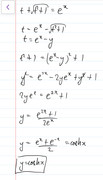 t+√t²+1 = eˣ
t = eˣ - √t²+1
t = eˣ - y
t²+1 = (eˣ-y)² + 1
y² = e²ˣ - 2yeˣ + y² + 1
2yeˣ = e²ˣ + 1
y = e²ˣ+1 / 2eˣ
y = eˣ+e⁻ˣ / 2 = coshx
y = coshx